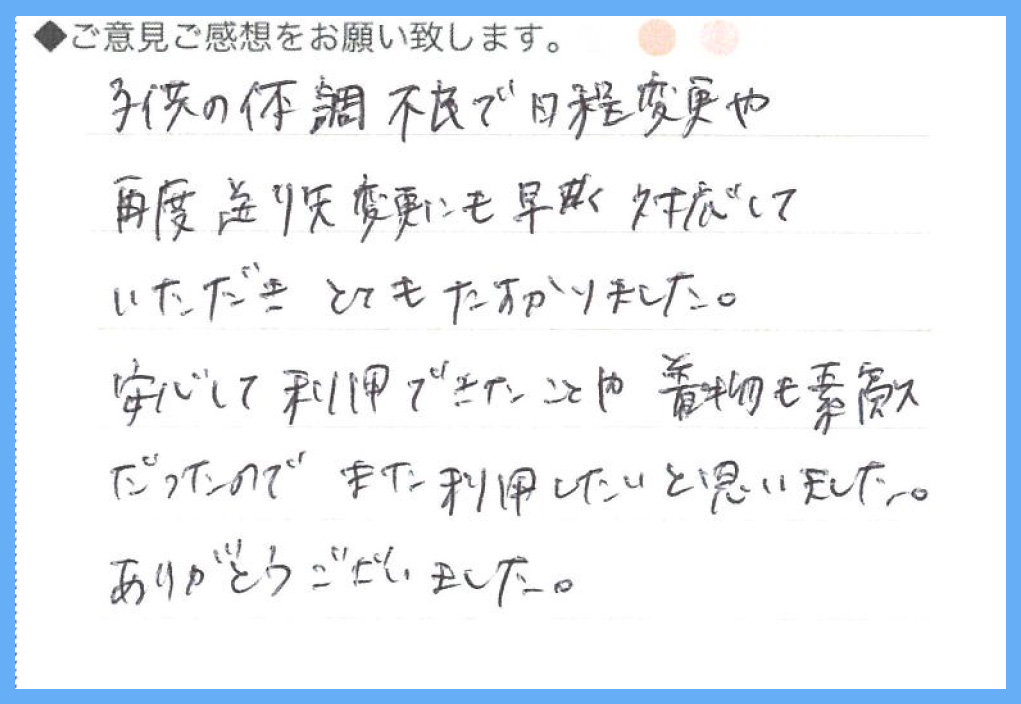 ◆ご意見ご感想をお願い致します。
子供の体調不良で日程変更や
再度送り先変更にも早急く対応して
いただき とても たすかりました。
安心して利用できたことや 着物も素敵
だったので また利用したいと思いました。
ありがとうございました。